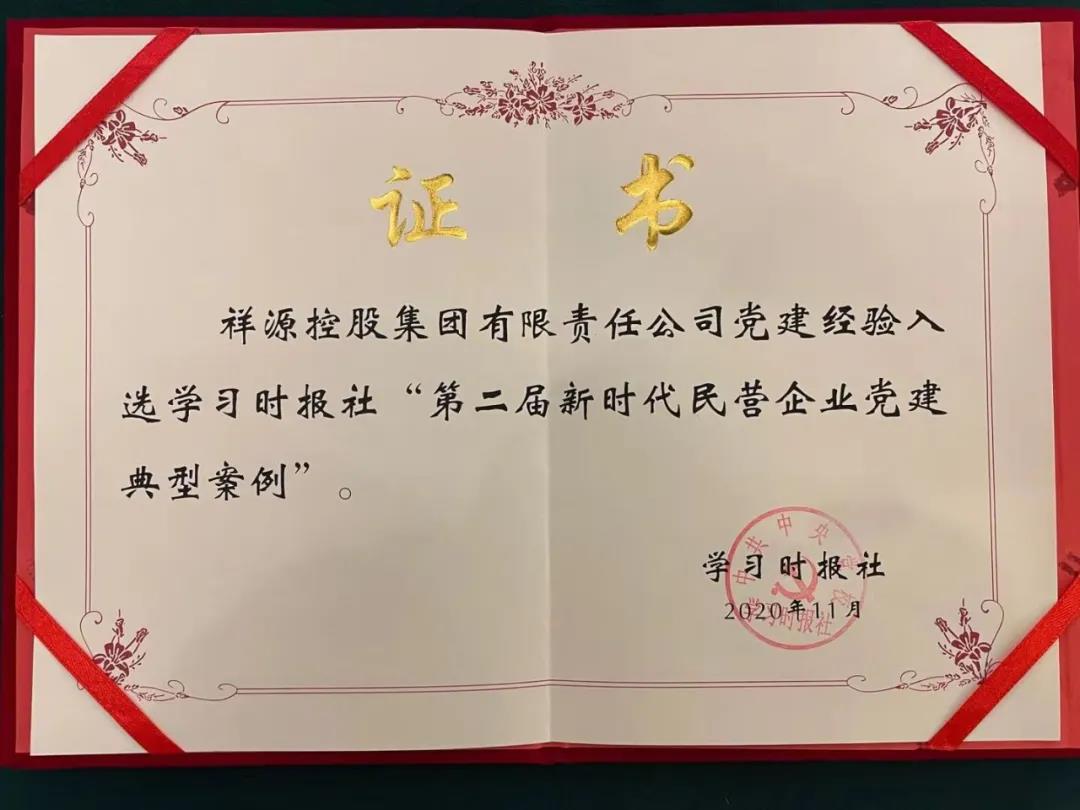 证书
祥源控股集团有限责任公司党建经验入
选学习时报社“第二届新时代民营企业党建
典型案例”。
中共中央党校
学习时报社
学习时报社
2020年11月